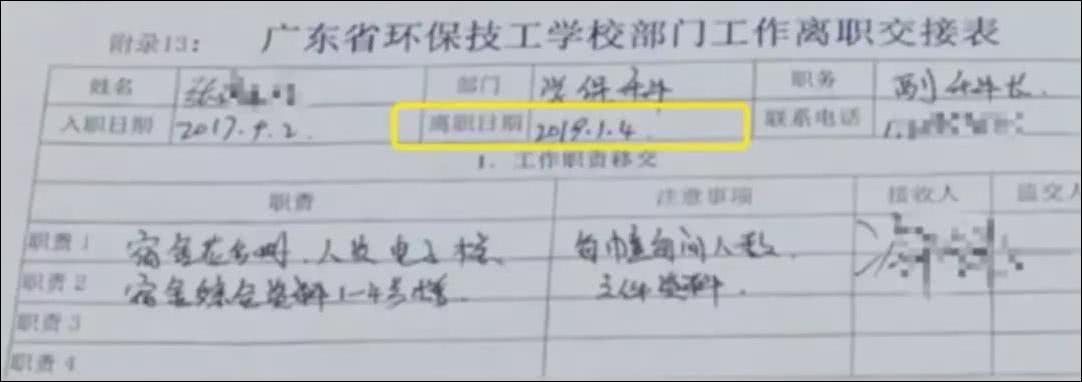 附录13： 广东省环保技工学校部门工作离职交接表
姓名 张 部门 职务 副科长
入职日期 2017.9.2. 离职日期 2019.1.4 联系电话 1.
1. 工作职责移交
职责 注意事项 接收人 监交人
职责1 宿舍花名册、人数
职责2 宿舍综合资料1-4 文件资料.
职责3
职责4